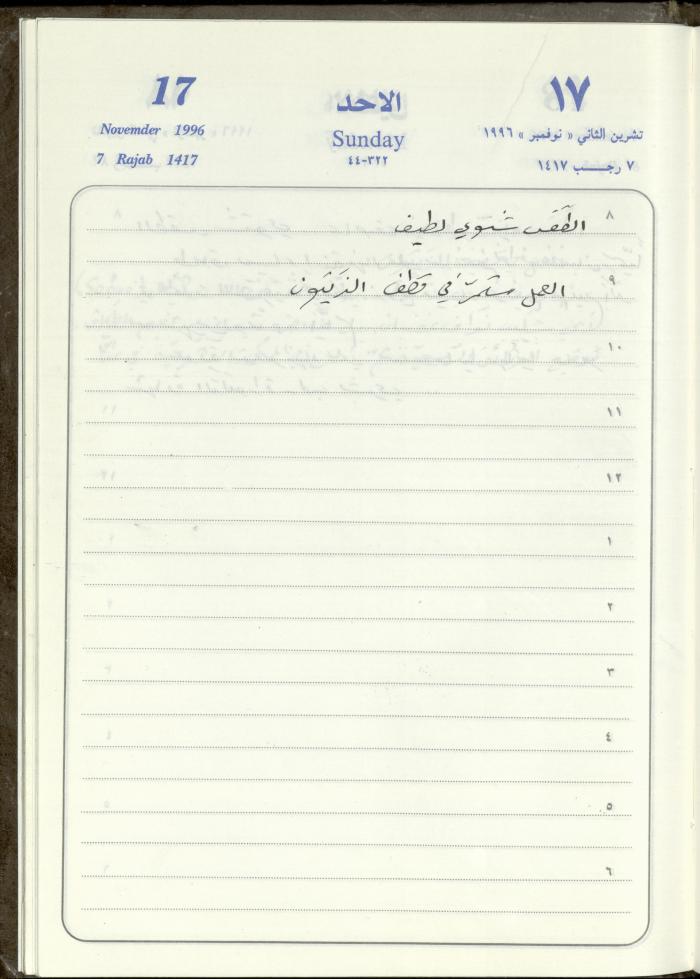 17 الاحد ١٧
Novemder 1996 Sunday تشرين الثاني « نوفمبر » ١٩٩٦
7 Rajab 1417 ٣٢٢-٤٤ ٧ رجـــب ١٤١٧
٨ الطقس شتوي لطيف
٩ العمل مستمرّ في قطف الزيتون
١٠
١١
١٢
١
٢
٣
٤
٥
٦